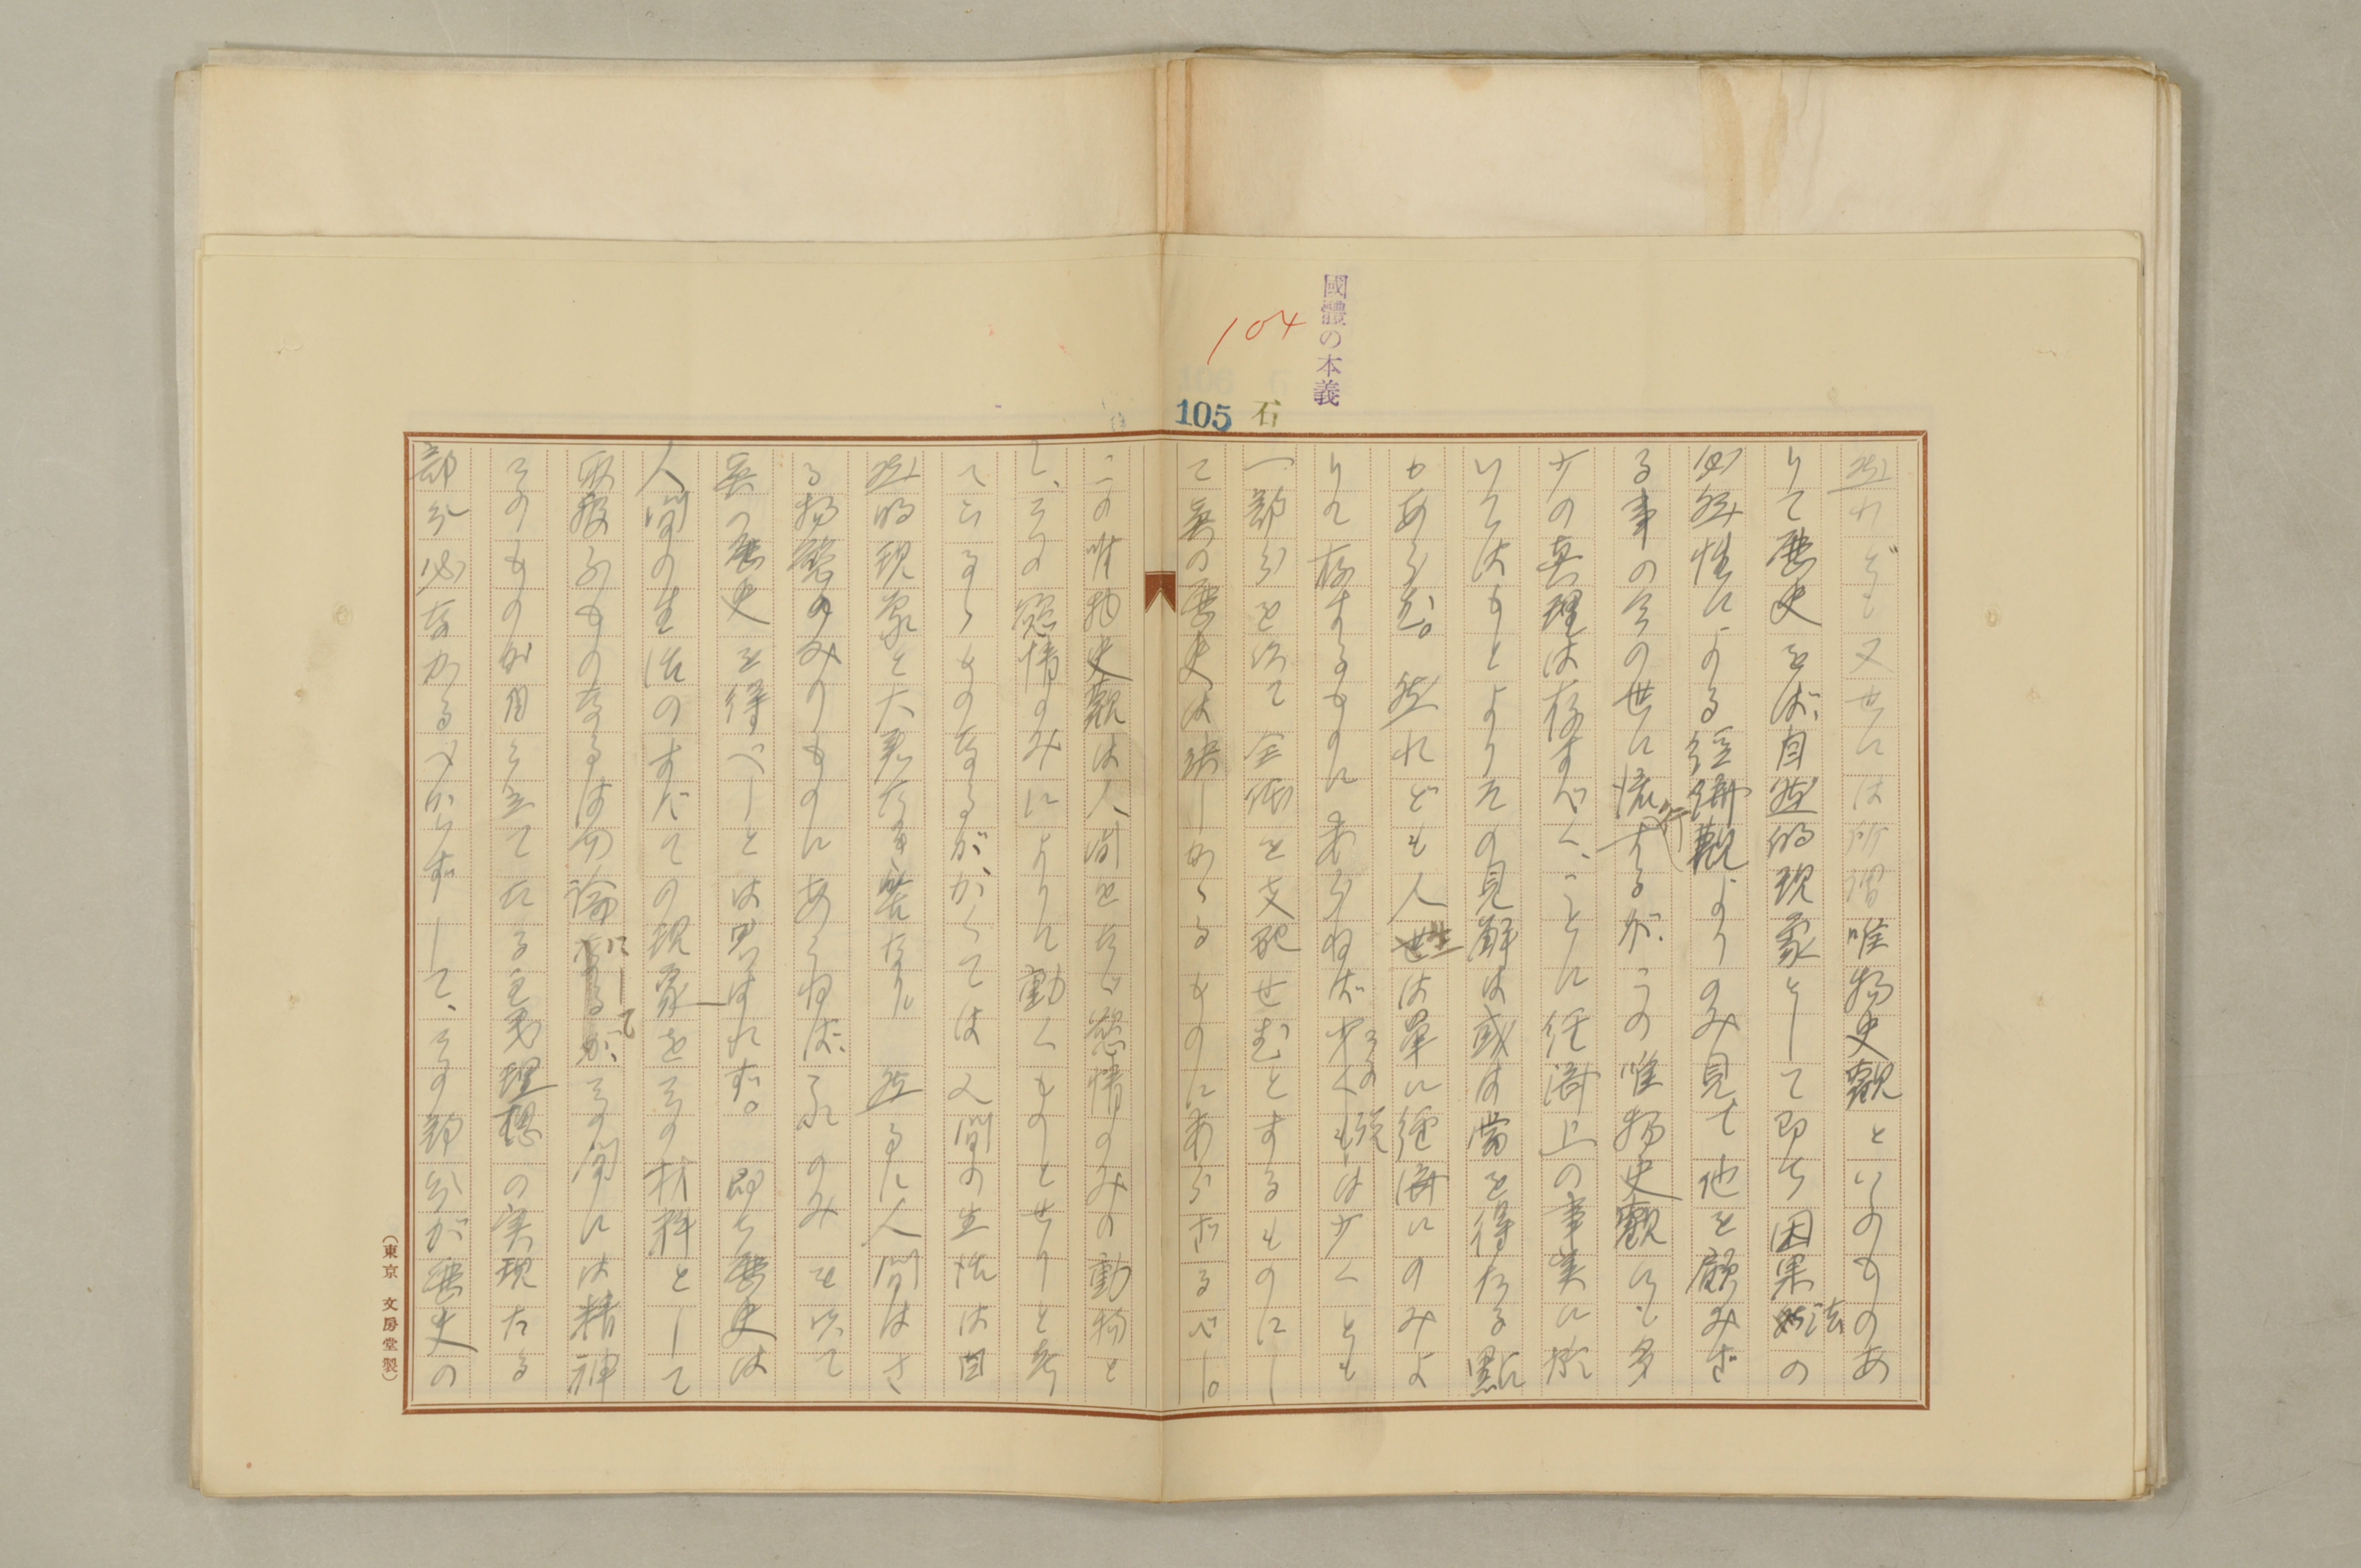 國體の本義
104
105 石
然れども又世には所謂唯物史觀といふものあ
りて歴史をば、自然的現象として即ち因果法の
必然性による經濟觀よりのみ見て他を顧みざ
る事の今の世に流行するが、この唯物史觀にも多
少の真理は存すべく、ことに經濟上の事実に於
いてはもとよりその見解は或は當を得たる點
もあらむ。然れども人生は單に經濟にのみよ
りて存するものにあらねばその説は少くとも
一部分を以て全体を支配せむとするものにし
て真の歴史は決しかゝるものにあらざるべし。
この唯物史觀は人間をたゞ慾情のみの動物と
し、その慾情のみによりて動くものとせりと考
へてゐるものなるが、かくては人間の生活は自
然的現象と大差なき筈なり。然るに人間はさ
る物慾のみのものにあらねば、それのみを以て
真の歴史を得べしとは思はれず。即ち歴史は
人間の生活のすべての現象をその材料として
取扱ふものなるは勿論にして、その間には精神
そのものが自ら立てたる意義理想の実現たる
部分必なかるべからずして、その部分が歴史の
（東京 文房堂製）